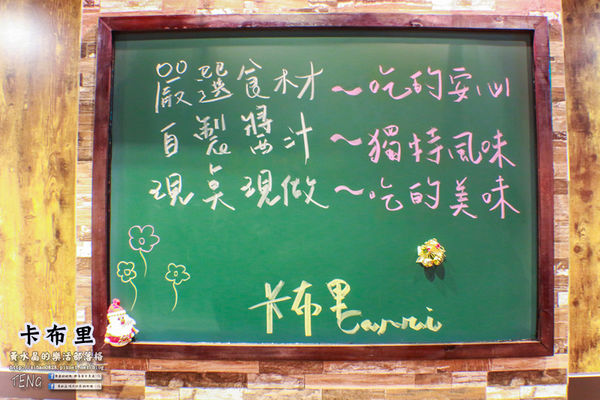 嚴選食材~吃的安心
自製醬汁~獨特風味
現點現做~吃的美味
卡布里Capri
卡布里
黃水晶的樂活部落格
TENG